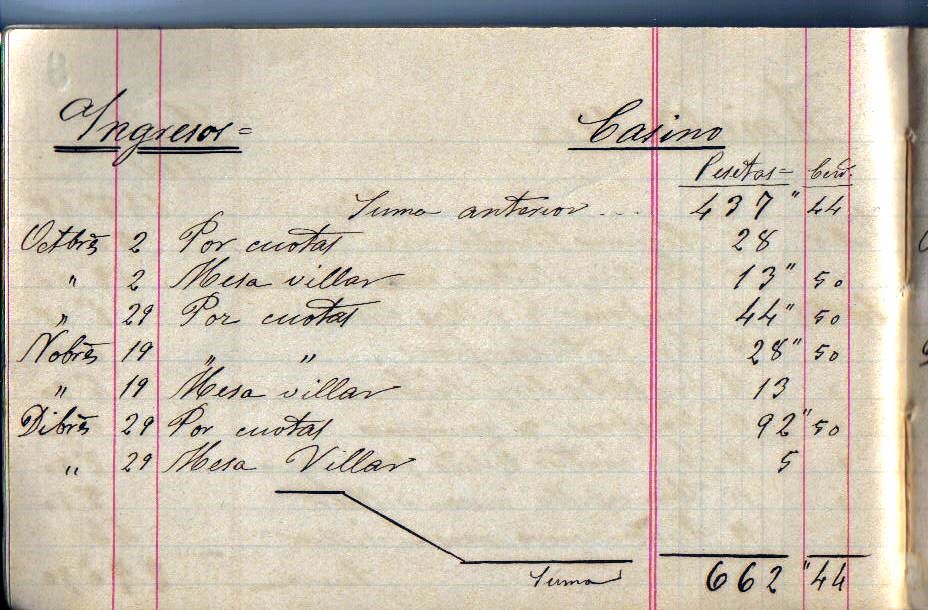 Ingresos= Casino
Pesetas= Cent.
Suma anterior ... 437 " 44
Octbre 2 Por cuotas 28
" 2 Mesa villar 13 " 50
" 29 Por cuotas 44 " 50
Nobre 19 " " 28 " 50
" 19 Mesa villar 13
Dibre 29 Por cuotas 92 " 50
" 29 Mesa Villar 5
Suma 662 " 44